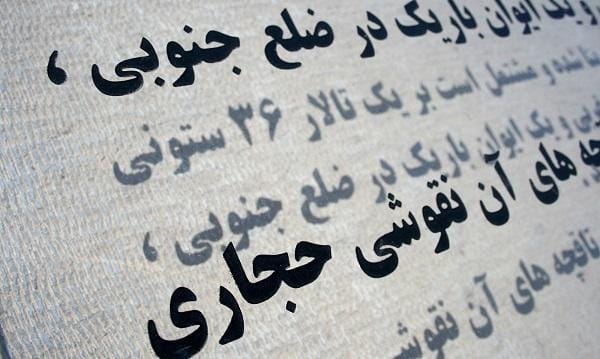 و یک ایوان باریک در ضلع جنوبی ،
بنا شده و مشتمل است بر یک تالار ۳۶ ستونی
و یک ایوان باریک در ضلع جنوبی ،
های آن نقوشی حجاری
های آن نقوشی